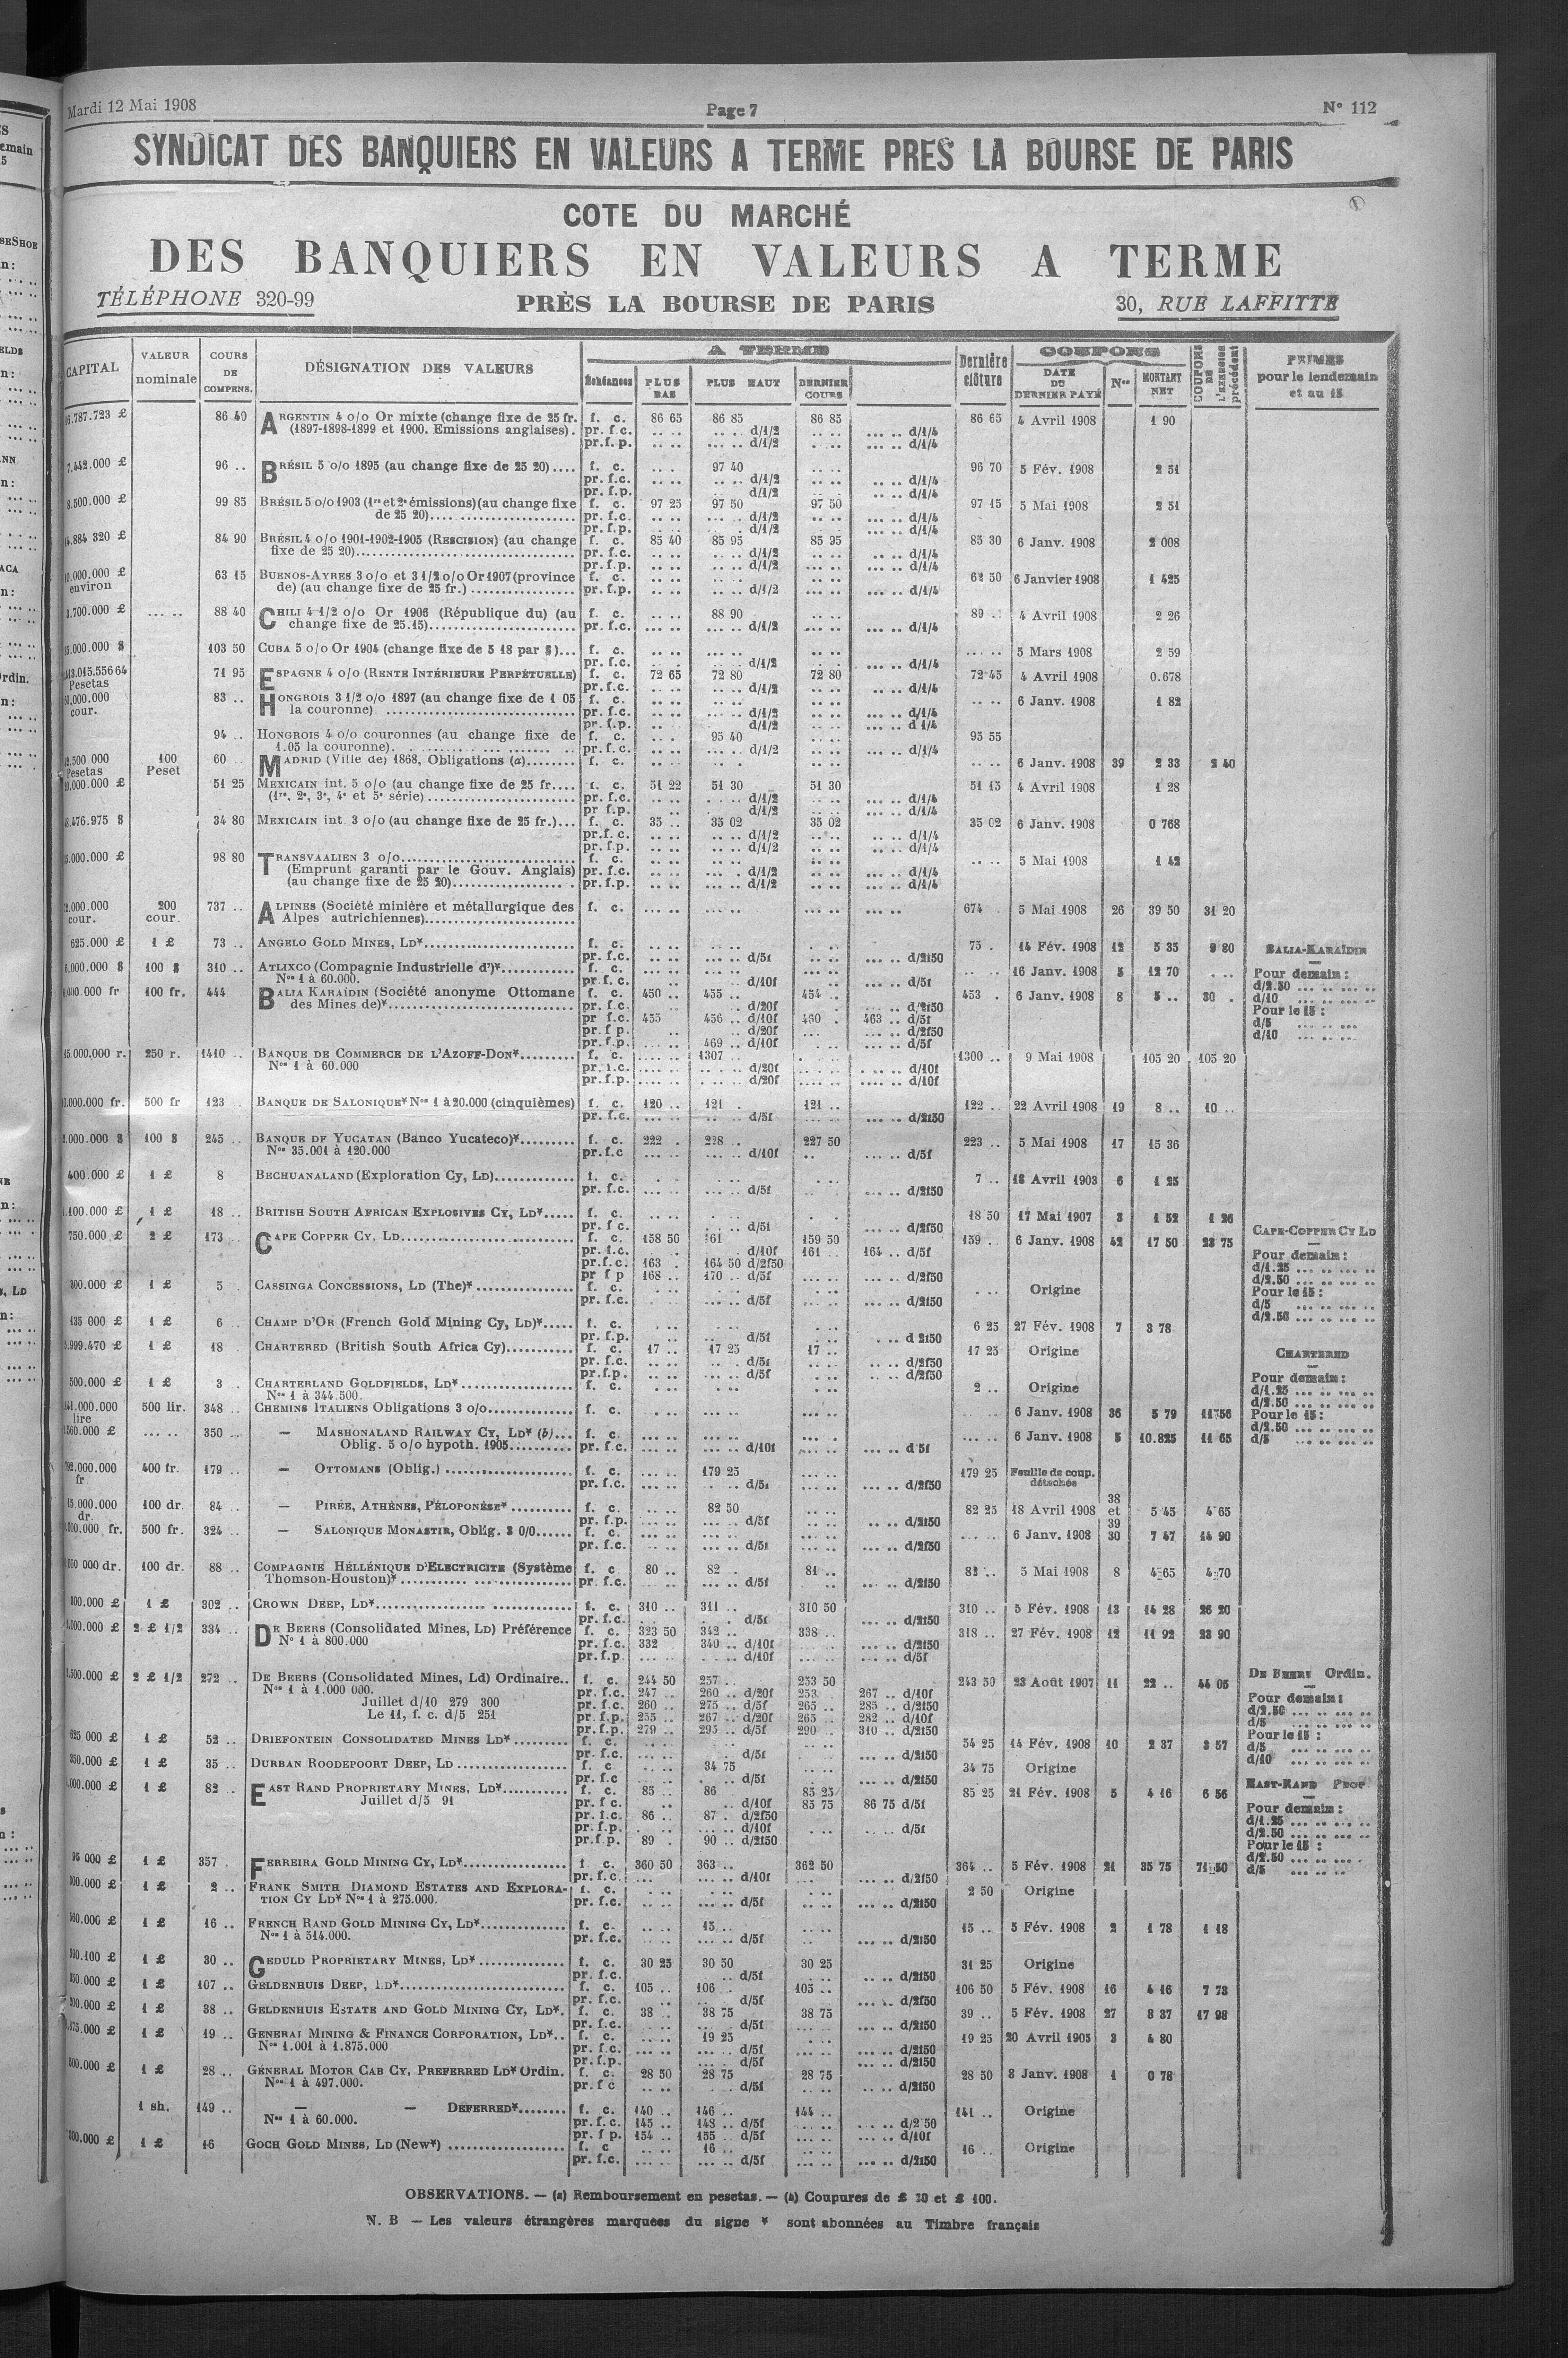 Mardi 12 Mai 1908
Page 7
N° 112
SYNDICAT DES BANQUIERS EN VALEURS A TERME PRES LA BOURSE DE PARIS
COTE DU MARCHÉ
DES BANQUIERS EN VALEURS A TERME
TÉLÉPHONE 320-99
PRÈS LA BOURSE DE PARIS
30, RUE LAFFITTE
CAPITAL VALEUR nominale COURS DE COMPENS. DÉSIGNATION DES VALEURS A TERME Échéances PLUS BAS PLUS HAUT DERNIER COURS Dernière clôture COUPONS DATE DU DERNIER PAYÉ Nos MONTANT NET COUPONS DE L'EXERCICE précédent PRIMES pour le lendemain et au 15
86 40 ARGENTIN 4 o/o Or mixte (change fixe de 25 fr. f. c. 86 65 86 85 86 85 86 65 4 Avril 1908 1 90
(1897-1898-1899 et 1900. Emissions anglaises). pr. f.c. d/1/2 d/1/4
pr.f.p. d/1/2 d/1/4
96 .. BRÉSIL 5 o/o 1895 (au change fixe de 25 20).... f. c. 97 40 96 70 5 Fév. 1908 2 51
pr. f.c. d/1/2 d/1/4
pr. f.p. d/1/2 d/1/4
8.500.000 £ 99 85 BRÉSIL 5 o/o 1903 (1re et 2e émissions) (au change fixe f. c. 97 25 97 50 97 50 97 15 5 Mai 1908 2 51
de 25 20).... pr. f.c. d/1/2 d/1/4
pr. f.p. d/1/2 d/1/4
84 90 BRÉSIL 4 o/o 1901-1902-1905 (RESCISION) (au change f. c. 85 40 85 95 85 95 85 30 6 Janv. 1908 2 008
fixe de 25 20).... pr. f.c. d/1/2 d/1/4
pr. f.p. d/1/2 d/1/4
environ 63 15 BUENOS-AYRES 3 o/o et 3 1/2 o/o Or 1907 (province f. c. 62 50 6 Janvier 1908 1 425
de) (au change fixe de 25 fr.) .... pr. f.p. d/1/2 d/1/4
88 40 CHILI 4 1/2 o/o Or 1906 (République du) (au f. c. 88 90 89 .. 4 Avril 1908 2 26
change fixe de 25.15).... pr. f.c. d/1/2 d/1/4
103 50 CUBA 5 o/o Or 1904 (change fixe de 5 18 par $)... f. c. 5 Mars 1908 2 59
pr. f.c. d/1/2 d/1/4
Pesetas 71 95 ESPAGNE 4 o/o (RENTE INTÉRIEURE PERPÉTUELLE) f. c. 72 65 72 80 72 80 72 45 4 Avril 1908 0.678
pr. f.c. d/1/2 d/1/4
cour. 83 .. HONGROIS 3 1/2 o/o 1897 (au change fixe de 1 05 f. c. 6 Janv. 1908 1 82
la couronne) .... pr. f.c. d/1/2 d/1/4
pr. f.p. d/1/2 d 1/4
94 .. HONGROIS 4 o/o couronnes (au change fixe de f. c. 95 40 95 55
1.05 la couronne).... pr. f.c. d/1/2 d/1/4
Pesetas 100 Peset 60 MADRID (Ville de) 1868, Obligations (a).... f. c. 6 Janv. 1908 39 2 33 2 40
51 25 MEXICAIN int. 5 o/o (au change fixe de 25 fr.... f. c. 51 22 51 30 51 30 51 15 4 Avril 1908 1 28
(1re, 2e, 3e, 4e et 5e série).... pr. f.c. d/1/2 d/1/4
pr f.p. d/1/2 d/1/4
34 80 MEXICAIN int. 3 o/o (au change fixe de 25 fr.)... f. c. 35 .. 35 02 35 02 35 02 6 Janv. 1908 0 768
pr.f. c. d/1/2 d/1/4
pr. f.p. d/1/2 d/1/4
98 80 TRANSVAALIEN 3 o/o.... f. c. 5 Mai 1908 1 42
(Emprunt garanti par le Gouv. Anglais) pr. f.c. d/1/2 d/1/4
(au change fixe de 25 20).... pr. f.p. d/1/2 d/1/4
cour. 200 cour. 737 .. ALPINES (Société minière et métallurgique des f. c. 674 . 5 Mai 1908 26 39 50 31 20
Alpes autrichiennes)....
625.000 £ 1 £ 73 .. ANGELO GOLD MINES, LD*.... f. c. 75 . 14 Fév. 1908 12 5 35 9 80
pr. f.c. d/5f d/2f50
100 $ 310 .. ATLIXCO (Compagnie Industrielle d')*.... f. c. 16 Janv. 1908 5 12 70
Nos 1 à 60.000. pr. f. c. d/10f d/5f
100 fr. 444 BALIA KARAÏDIN (Société anonyme Ottomane f. c. 450 .. 455 .. 454 .. 453 . 6 Janv. 1908 8 5 .. 30 .
des Mines de)*.... pr. f.c. d/20f d/2f50
pr f.c. 455 456 .. d/10f 460 . 463 .. d/5f
pr. f p. d/20f d/2f50
pr. f.p. 469 .. d/10f d/5f
BALIA-KARAÏDIN
Pour demain :
d/2.50
d/10
Pour le 15 :
d/5
d/10
250 r. 1410 .. BANQUE DE COMMERCE DE L'AZOFF-DON*.... f. c. 1307 .. 1300 .. 9 Mai 1908 105 20 105 20
Nos 1 à 60.000 pr. f.c. d/20f d/10f
pr. f.p. d/20f d/10f
500 fr 123 BANQUE DE SALONIQUE* Nos 1 à 20.000 (cinquièmes) f. c. 120 .. 121 . 121 .. 122 .. 22 Avril 1908 19 8 .. 10 ..
pr. f.c. d/5f d/2f50
100 $ 245 .. BANQUE DE YUCATAN (Banco Yucateco)*.... f. c. 222 . 228 .. 227 50 223 .. 5 Mai 1908 17 15 36
Nos 35.001 à 120.000 pr.f.c d/10f d/5f
400.000 £ 1 £ 8 BECHUANALAND (Exploration Cy, LD).... f. c. 7 .. 18 Avril 1903 6 1 25
pr. f.c. d/5f d/2f50
1 £ 18 .. BRITISH SOUTH AFRICAN EXPLOSIVES CY, LD*.... f. c. 18 50 17 Mai 1907 3 1 52 1 26
pr. f c. d/5f d/2f50
750.000 £ 2 £ 173 .. CAPE COPPER CY, LD.... f. c. 158 50 161 159 50 159 .. 6 Janv. 1908 42 17 50 23 75
pr. f.c. d/10f 161 .. 164 .. d/5f
pr.f.c. 163 . 164 50 d/2f50
pr f p 168 .. 170 .. d/5f d/2f50
CAPE-COPPER CY LD
Pour demain :
d/1.25
d/2.50
Pour le 15 :
d/5
d/2.50
1 £ 5 CASSINGA CONCESSIONS, LD (The)*.... f. c. Origine
pr. f.c. d/5f d/2f50
135 000 £ 1 £ 6 CHAMP D'OR (French Gold Mining Cy, LD)*.... f. c. 6 25 27 Fév. 1908 7 3 78
pr. f.p. d/5f d 2f50
1 £ 18 CHARTERED (British South Africa Cy).... f. c. 17 .. 17 25 17 .. 17 25 Origine
pr. f.c. d/5f d/2f50
pr. f.p. d/5f d/2f50
CHARTERED
Pour demain :
d/1.25
d/2.50
Pour le 15 :
d/2.50
d/5
500.000 £ 1 £ 3 CHARTERLAND GOLDFIELDS, LD*.... f. c. 2 .. Origine
Nos 1 à 344.500.
lire 500 lir. 348 .. CHEMINS ITALIENS Obligations 3 o/o.... f. c. 6 Janv. 1908 36 5 79 11 56
350 .. — MASHONALAND RAILWAY CY, LD* (b)... f. c. 6 Janv. 1908 5 10.825 11 65
Oblig. 5 o/o hypoth. 1905.... pr. f.c. d/10f d 5f
fr 400 fr. 179 .. — OTTOMANS (Oblig.) .... f. c. 179 25 179 25 Feuille de coup. détachée
pr. f.c. d/5f d/2f50
dr. 100 dr. 84 .. — PIRÉE, ATHÈNES, PÉLOPONÈSE*.... f. c. 82 50 82 25 18 Avril 1908 38 et 39 5 45 4 65
pr. f.p. d/5f d/2f50
500 fr. 324 .. — SALONIQUE MONASTIR, Oblig. 3 0/0.... f. c. 6 Janv. 1908 30 7 47 14 90
pr. f.c. d/5f d/2f50
100 dr. 88 .. COMPAGNIE HELLÉNIQUE D'ELECTRICITE (Système f. c 80 .. 82 . 81 .. 82 .. 5 Mai 1908 8 4 65 4 70
Thomson-Houston)*.... pr. f.c. d/5f d/2f50
1 £ 302 .. CROWN DEEP, LD*.... f. c. 310 .. 311 .. 310 50 310 .. 5 Fév. 1908 13 14 28 26 20
pr. f.c. d/5f d/2f50
2 £ 1/2 334 .. DE BEERS (Consolidated Mines, LD) Préférence f. c. 323 50 342 .. 338 .. 318 .. 27 Fév. 1908 12 11 92 23 90
N° 1 à 800.000 pr. f.c. 332 340 .. d/10f d/2f50
pr. f.p. d/10f d/5f
2 £ 1/2 272 .. DE BEERS (Consolidated Mines, Ld) Ordinaire.. f. c. 244 50 257 .. 253 50 243 50 23 Août 1907 11 22 .. 44 05
Nos 1 à 1.000 000. pr. f.c. 247 .. 260 .. d/20f 253 .. 267 .. d/10f
Juillet d/10 279 300 pr. f.c. 260 .. 275 .. d/5f 265 .. 285 .. d/2f50
Le 11, f. c. d/5 251 pr. f.p. 255 .. 267 .. d/20f 265 .. 282 .. d/10f
pr. f.p. 279 .. 295 .. d/5f 290 .. 310 .. d/2f50
DE BEERS Ordin.
Pour demain :
d/2.50
d/5
Pour le 15 :
d/5
d/10
625 000 £ 1 £ 52 .. DRIEFONTEIN CONSOLIDATED MINES LD*.... f. c. 54 25 14 Fév. 1908 10 2 37 3 57
pr. f.c. d/5f d/2f50
1 £ 35 .. DURBAN ROODEPOORT DEEP, LD .... f. c 34 75 34 75 Origine
pr. f.c d/5f d/2f50
1 £ 82 .. EAST RAND PROPRIETARY MINES, LD*.... f. c. 85 .. 86 85 25 85 25 21 Fév. 1908 5 4 16 6 56
Juillet d/5 91 pr. f c. d/10f 85 75 86 75 d/5f
pr. f.c. 86 .. 87 . d/2f50
pr. f.p. d/10f d/5f
pr.f.p. 89 . 90 .. d/2f50
EAST-RAND PROP
Pour demain :
d/1.25
d/2.50
Pour le 15 :
d/2.50
d/5
1 £ 357 . FERREIRA GOLD MINING CY, LD*.... f. c. 360 50 363 .. 362 50 364 .. 5 Fév. 1908 21 35 75 71 50
pr. f.c. d/10f d/2f50
1 £ 2 .. FRANK SMITH DIAMOND ESTATES AND EXPLORA- f. c. 2 50 Origine
TION CY LD* Nos 1 à 275.000. pr. f.c. d/5f d/2f50
1 £ 16 .. FRENCH RAND GOLD MINING CY, LD*.... f. c. 15 .. 15 .. 5 Fév. 1908 2 1 78 1 18
Nos 1 à 514.000. pr. f.c. d/5f d/2f50
1 £ 30 .. GEDULD PROPRIETARY MINES, LD*.... f. c. 30 25 30 50 30 25 31 25 Origine
pr. f.c. d/5f d/2f50
1 £ 107 .. GELDENHUIS DEEP, LD*.... f. c. 105 .. 106 . 105 .. 106 50 5 Fév. 1908 16 4 16 7 73
pr. f.c. d/5f d/2f50
1 £ 38 .. GELDENHUIS ESTATE AND GOLD MINING CY, LD*. f. c. 38 .. 38 75 38 75 39 .. 5 Fév. 1908 27 8 37 17 98
pr. f.c. d/5f d/2f50
1 £ 19 .. GENERAL MINING & FINANCE CORPORATION, LD*.. f. c. 19 25 19 25 20 Avril 1905 3 4 80
Nos 1.001 à 1.875.000 pr. f.c. d/5f d/2f50
pr. f.p. d/5f d/2f50
1 £ 28 .. GÉNÉRAL MOTOR CAB CY, PREFERRED LD* Ordin. f. c. 28 50 28 75 28 75 28 50 8 Janv. 1908 1 0 78
Nos 1 à 497.000. pr. f c d/5f d/2f50
1 sh. 149 .. — — DEFERRED*.... f. c. 140 .. 146 .. 144 .. 141 .. Origine
Nos 1 à 60.000. pr. f.c. 145 .. 143 .. d/5f d/2 50
pr. f p. 154 .. 155 .. d/5f d/10f
1 £ 16 GOCH GOLD MINES, LD (New*) .... f. c 16 .. 16 .. Origine
pr. f.c. d/5f d/2f50
OBSERVATIONS. — (a) Remboursement en pesetas. — (b) Coupures de £ 20 et £ 100.
N. B — Les valeurs étrangères marquées du signe * sont abonnées au Timbre français